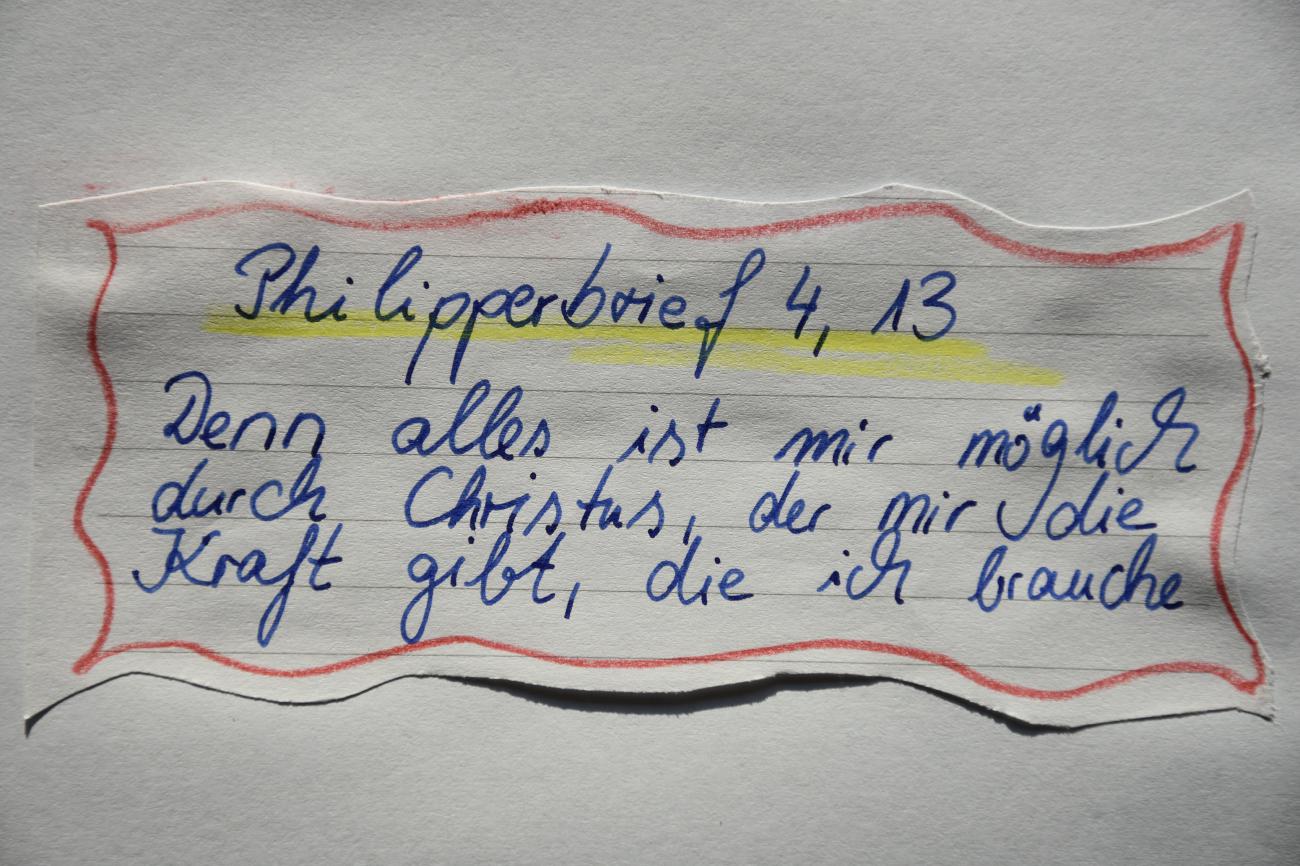 Philipperbrief 4, 13
Denn alles ist mir möglich
durch Christus, der mir die
Kraft gibt, die ich brauche